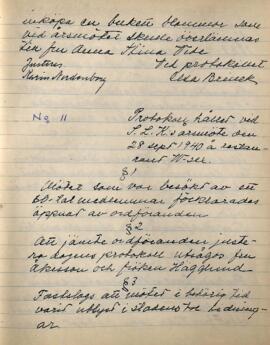 inköpa en bukett blommor som
vid årsmötet skulle överlämnas
till fru Anna Stina
Justeras Vid protokollet
Karin Nordenborg Elsa
No 11 Protokoll hållet vid
S.L.K:s årsmöte den
28 sept 1940 å restau-
rant W-sex.
§1
Mötet som var besökt av ett
60-tal medlemmar förklarades
öppnat av ordföranden
§2
Att jämte ordföranden juste-
ra dagens protokoll utsågs fru
Åkesson och fröken Hägglund
§3
Fastslogs att mötet i behörig tid
varit utlyst i stadens tre tidning-
ar.